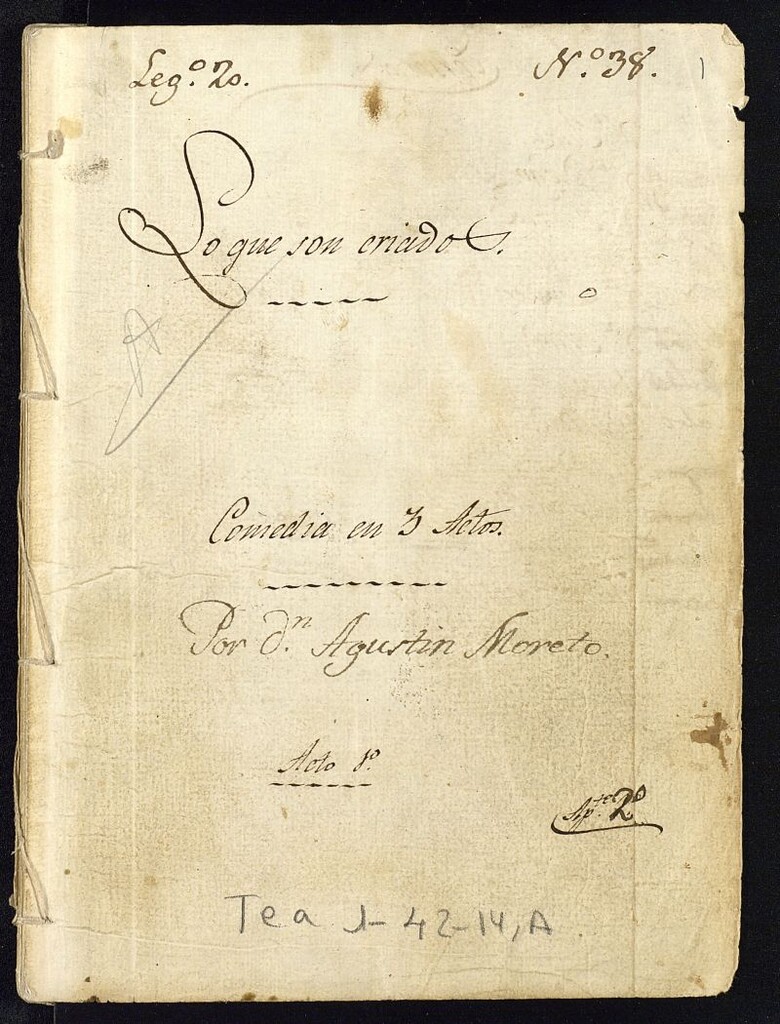 Leg.º 2o. Nº 38. 1
Lo que son criados.
A
Comedia en 3 Actos.
Por d.n Agustin Moreto.
Acto 1º
Ap.te 2º
Tea 1-42-14, A